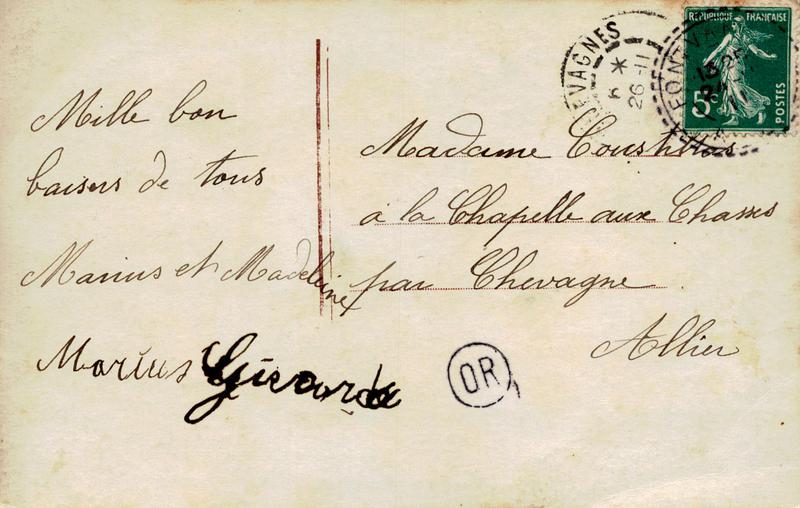 Mille bon
baisers de tous
Marius et Madeleine
Marius Girard
Madame
à la Chapelle aux Chasses
par Chevagne
Allier
OR
CHEVAGNES
26-11
REPUBLIQUE FRANÇAISE
5c
POSTES